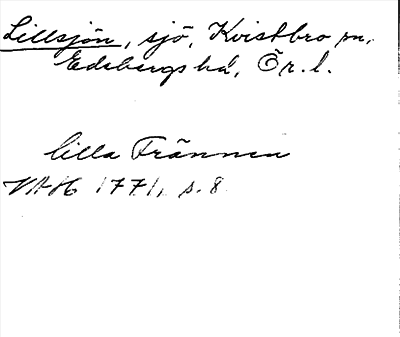 Lillsjön, sjö, Kvistbro sn,
Edsbergs hd, Ör. l.
lilla Frännen
VAH 1771, s. 8